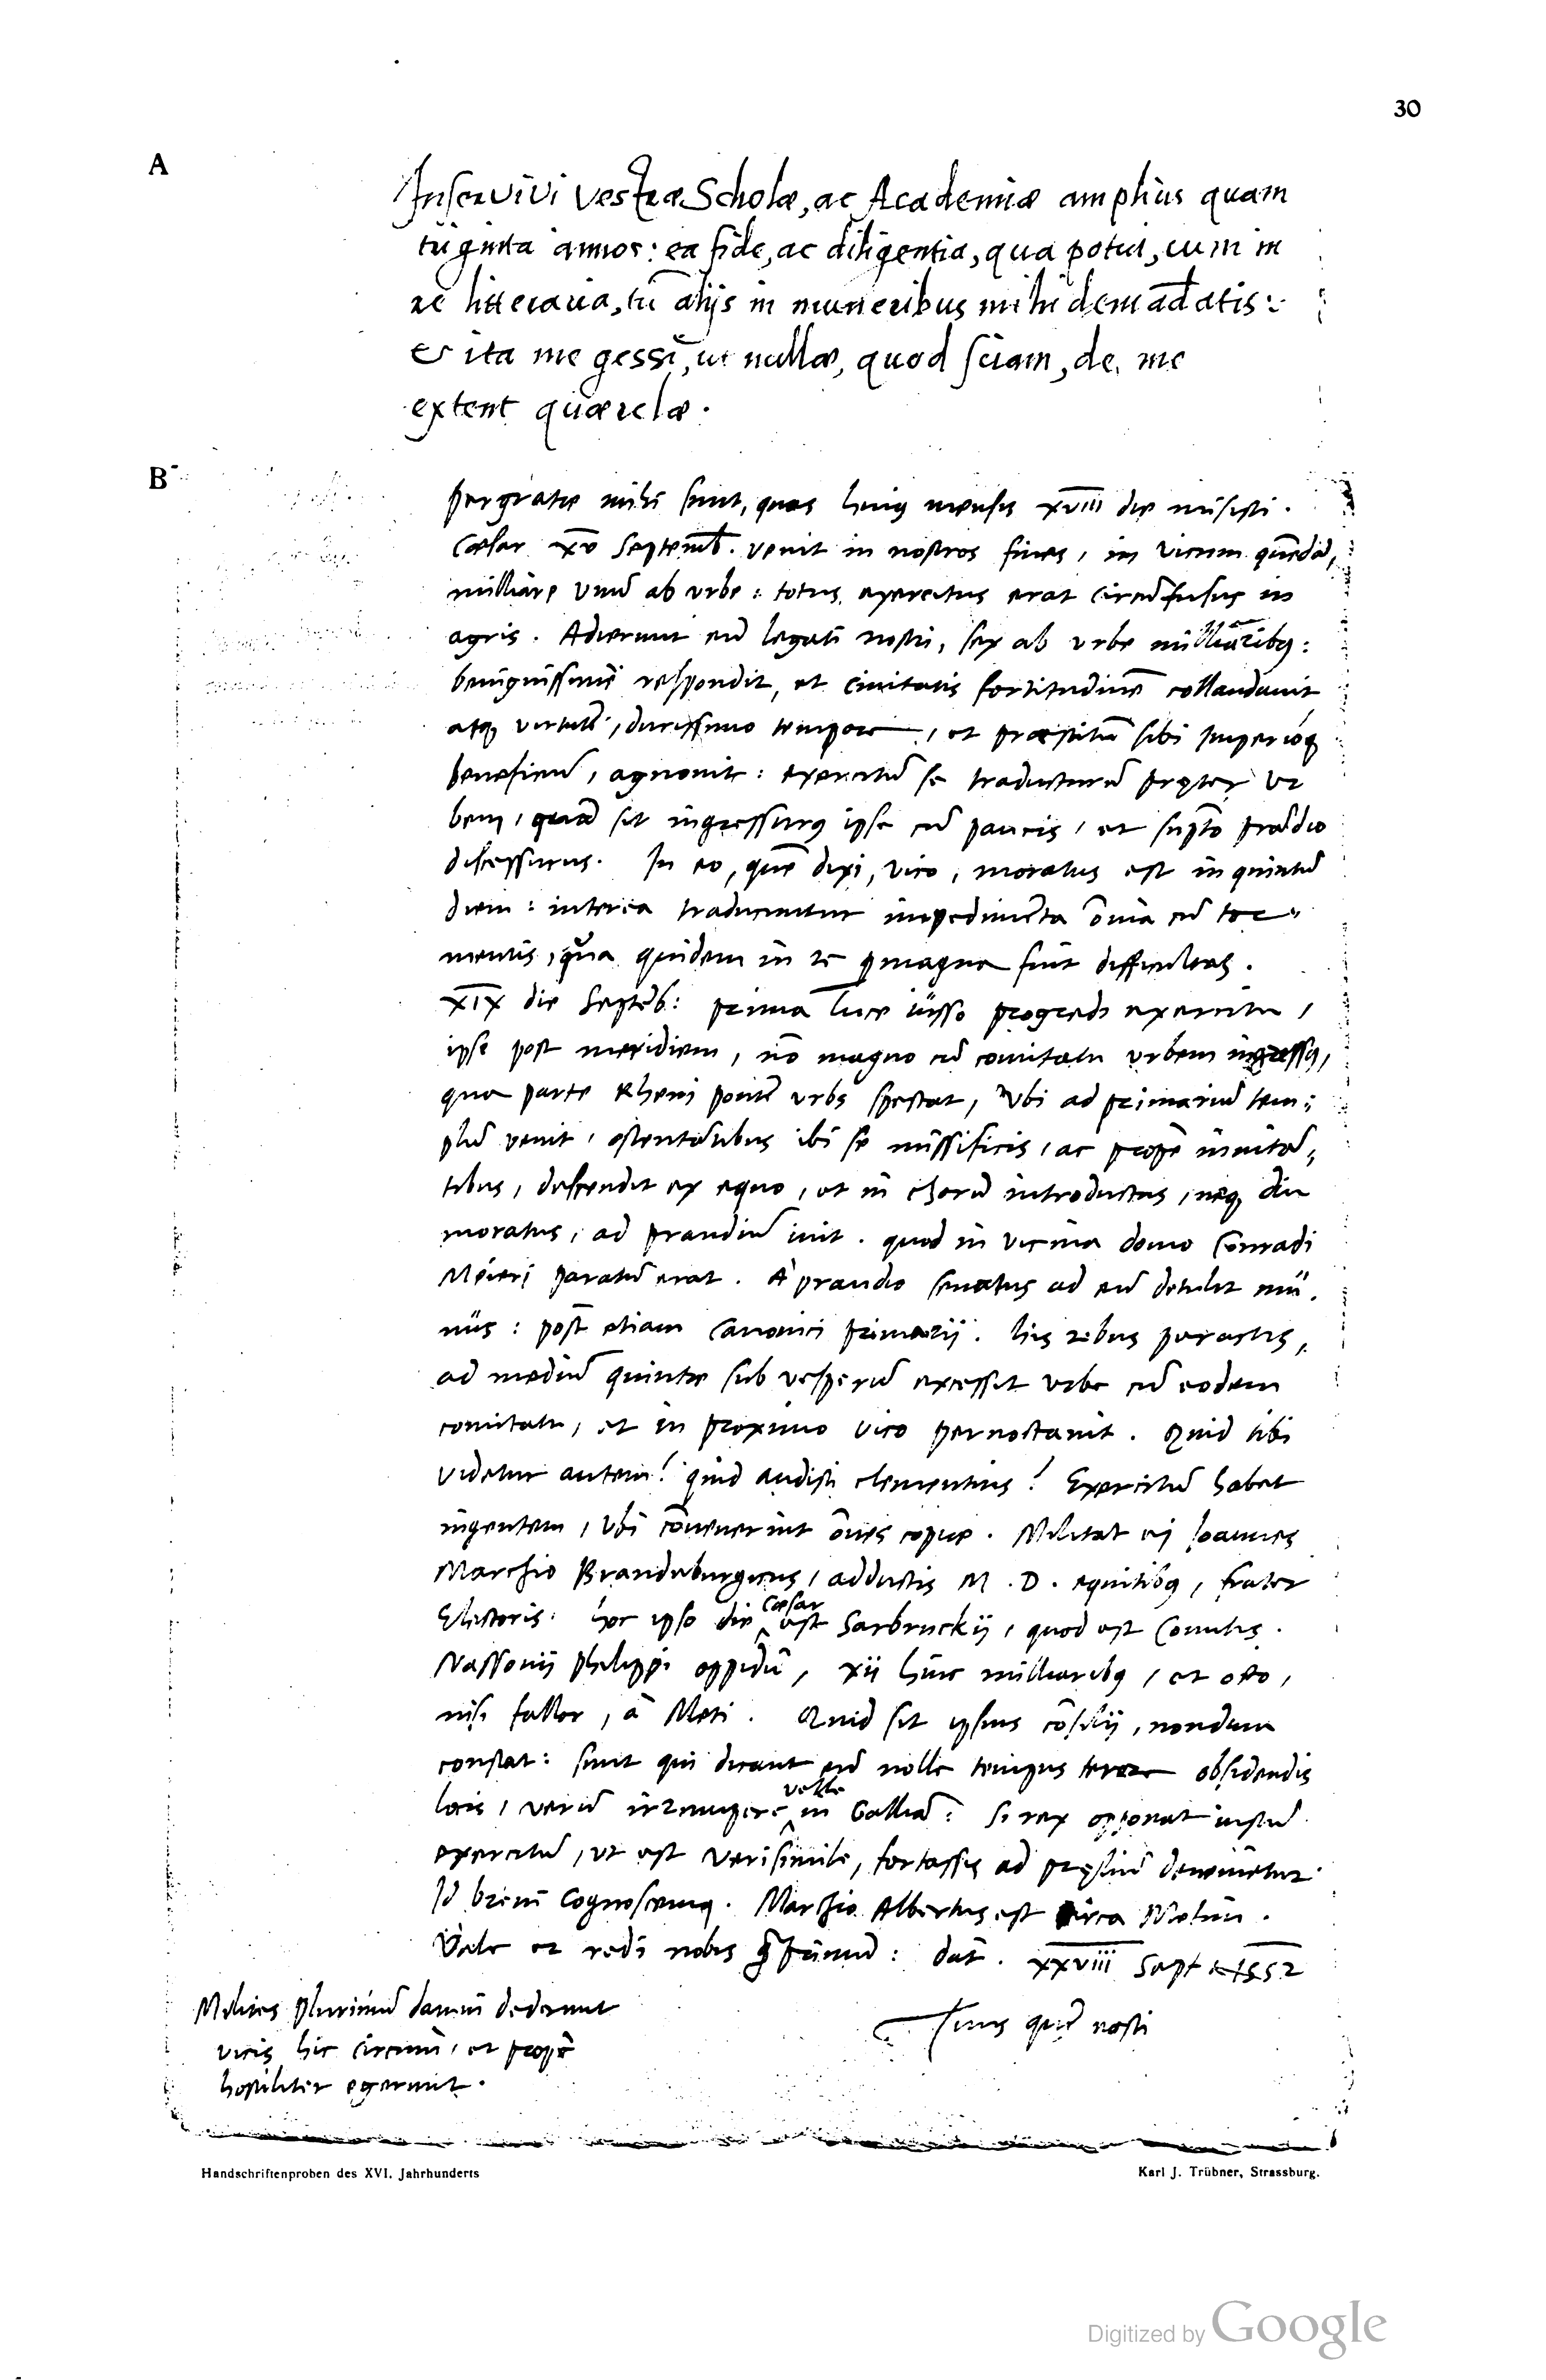 30
A
Inservivi vestræ Scholæ, ac Academiæ amplius quam
trigintа annos: ea fide, ac diligentia, qua potui, cum in
re litteraria, tū alijs in muneribus mihi demādatis:
et ita me gessi, ut nullæ, quod sciam, de me
extent quærelæ.
B
pergratæ mihi sunt, quas huius mensis xviii die misisti.
Cæsar xv Septemb. venit in nostros fines, in vicum quēdā,
milliare unū ab vrbe: totus exercitus erat circūfusus in
agris. Adierunt eū legati nostri, sex ab vrbe milliaribus:
benignissimè respondit, et ciuitatis fortitudinē collaudauit
atq virtutē, durissimo tempore, et præstitū sibi Imperioq
beneficiū, agnouit: exercitū se traducturū pręter vr
bem, quā sit ingressurus ipse cū paucis, et sūpto prādio
discessurus. In eo, quē dixi, vico, moratus est in quintū
diem: interea traducuntur impedimēta ōnia cū tor
mentis, qua quidem in re permagna fuit difficultas.
XIX die Septēb: prima luce iusso progredi exercitu,
ipse post meridiem, nō magno cū comitatu vrbem ingressus,
qua parte Rheni pontē vrbs spectat, vbi ad primariū tem:
plū venit, ostentātibus ibi se missificis, ac propè inuitā,
tibus, descendit ex equo, et in chorū introductus, neq diu
moratus, ad prandiū iuit. quod in vicina domo Conradi
Meieri paratū erat. A prandio senatus ad eū detulit mu.
nus: pōst etiam Canonici primarij. his rebus peractis,
ad mediū quintæ sub vesperū excessit vrbe cū eodem
comitatu, et in proximo vico pernoctauit. Quid tibi
videtur autem? quid audisti clementius? Exercitū habet
ingentem, vbi cōuenerint ōnes copiæ. Militat ei Ioannes
Marchio Brandeburgicus, adductis M. D. equitibus, frater
Electoris. hoc ipso die Cæsar est Sarbruckij, quod est Comitis
Nassouij Philippi oppidū, xii hinc milliaribus, et octo,
nisi fallor, à Meti. Quid sit ipsius cōsilij, nondum
constat: sunt qui dicant eū nolle tempus terere obsidendis
locis, verū irrumpere velle in Galliā: si rex opponat iustū
exercitū, vt est verisimile, fortassis ad pręliū deuenietur.
Id breui cognoscemus. Marchio Albertus est circa Metim.
Vale et redi nobis q̃primū: dat. xxviii Sept 1552
Tuus quē nosti
Milites plurimū damni dederunt
vicis hic circum, et propè
hostiliter egerunt.
Handschriftenproben des XVI. Jahrhunderts
Karl J. Trübner, Strassburg.
Digitized by Google